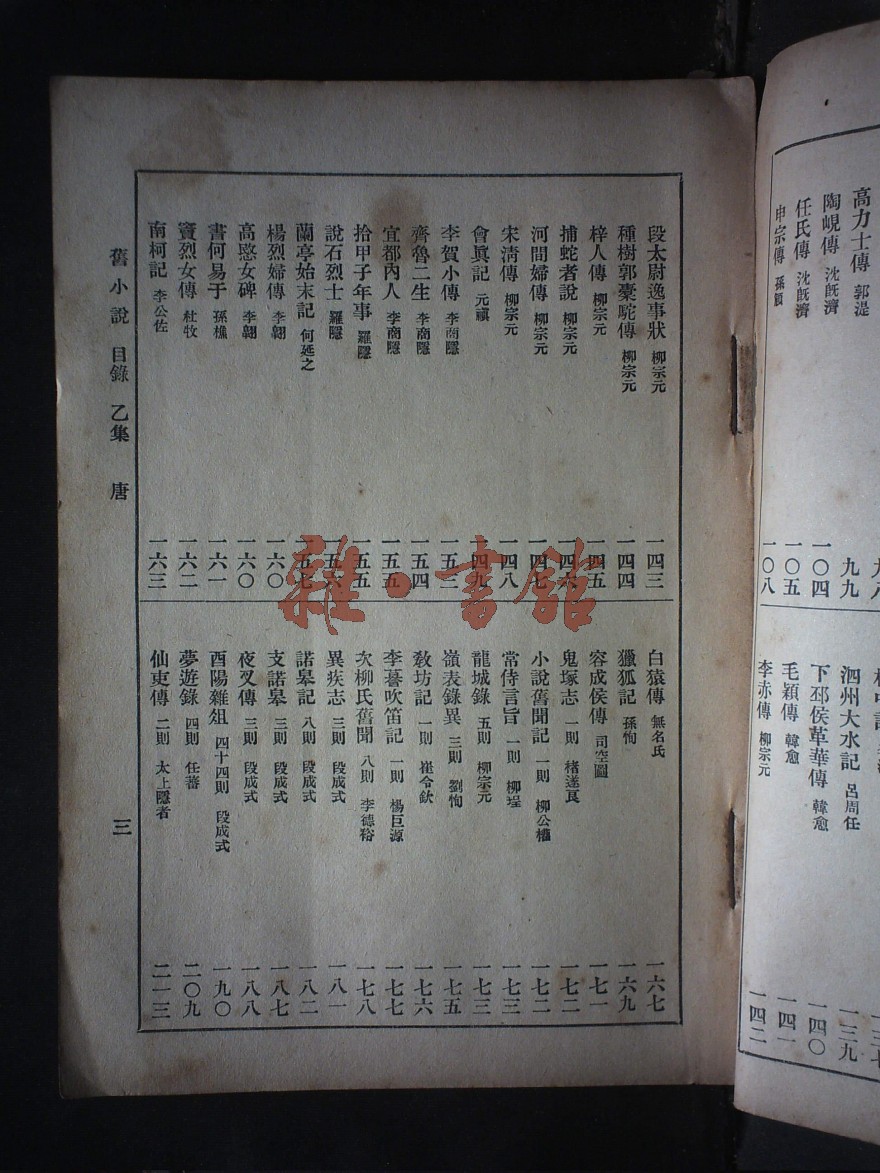 高力士傳 郭湜
陶峴傳 沈旣濟 一〇四
任氏傳 沈旣濟 一〇五
申宗傳 孫頠 一〇八
九九
泗州大水記 呂周任 一三九
下邳侯革華傳 韓愈 一四〇
毛穎傳 韓愈 一四一
李赤傳 柳宗元 一四二
段太尉逸事狀 柳宗元 一四三
種樹郭橐駝傳 柳宗元 一四四
梓人傳 柳宗元 一四五
捕蛇者說 柳宗元 一四六
河間婦傳 柳宗元 一四七
宋淸傳 柳宗元 一四八
會眞記 元稹 一四九
李賀小傳 李商隱 一五三
齊魯二生 李商隱 一五四
宜都內人 李商隱 一五五
拾甲子年事 羅隱 一五五
說石烈士 羅隱 一五六
蘭亭始末記 何延之 一五七
楊烈婦傳 李翺 一六〇
高愍女碑 李翺 一六〇
書何易于 孫樵 一六一
竇烈女傳 杜牧 一六二
南柯記 李公佐 一六三
白猿傳 無名氏 一六七
獵狐記 孫恂 一六九
容成侯傳 司空圖 一七一
鬼塚志 一則 褚遂良 一七二
小說舊聞記 一則 柳公權 一七二
常侍言旨 一則 柳珵 一七三
龍城錄 五則 柳宗元 一七三
嶺表錄異 三則 劉恂 一七五
敎坊記 一則 崔令欽 一七六
李謩吹笛記 一則 楊巨源 一七七
次柳氏舊聞 八則 李德裕 一七八
異疾志 三則 段成式 一八一
諾皋記 八則 段成式 一八二
支諾皋 三則 段成式 一八七
夜叉傳 三則 段成式 一八八
酉陽雜俎 四十四則 段成式 一九〇
夢遊錄 四則 任蕃 二〇九
仙吏傳 二則 太上隱者 二一三
舊小說 目錄 乙集 唐 三
雜·書館